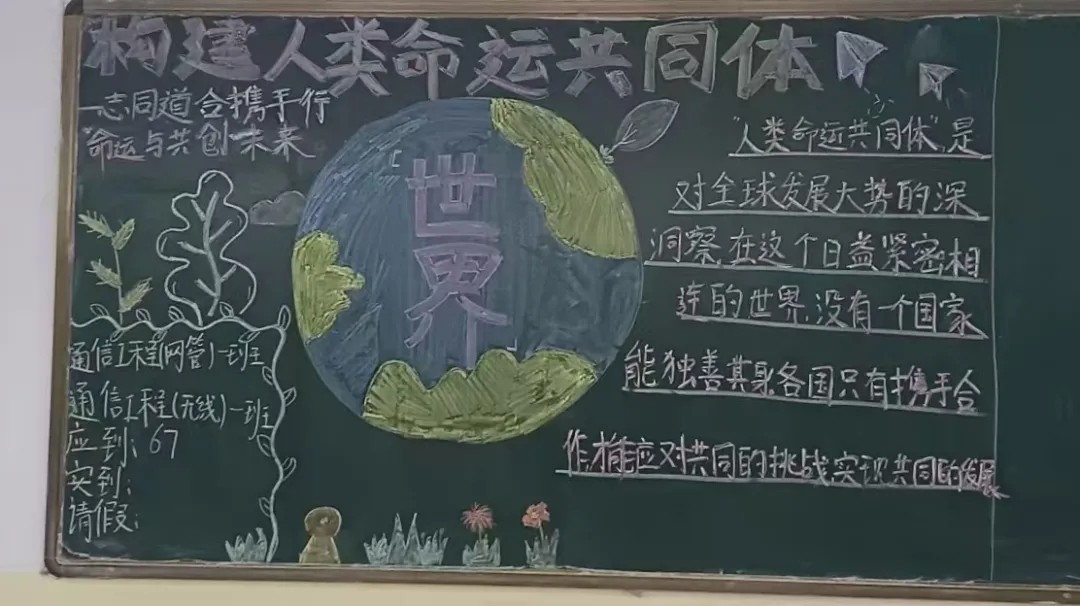 构建人类命运共同体
一志同道合携手行
命运与共创未来
世界
"人类命运共同体"是
对全球发展大势的深
洞察,在这个日益紧密相
连的世界,没有一个国家
能独善其身,各国只有携手合
作,才能应对共同的挑战,实现共同的发展
通信工程(网管)一班
通信工程(无线)一班
应到:67
实到:
请假: